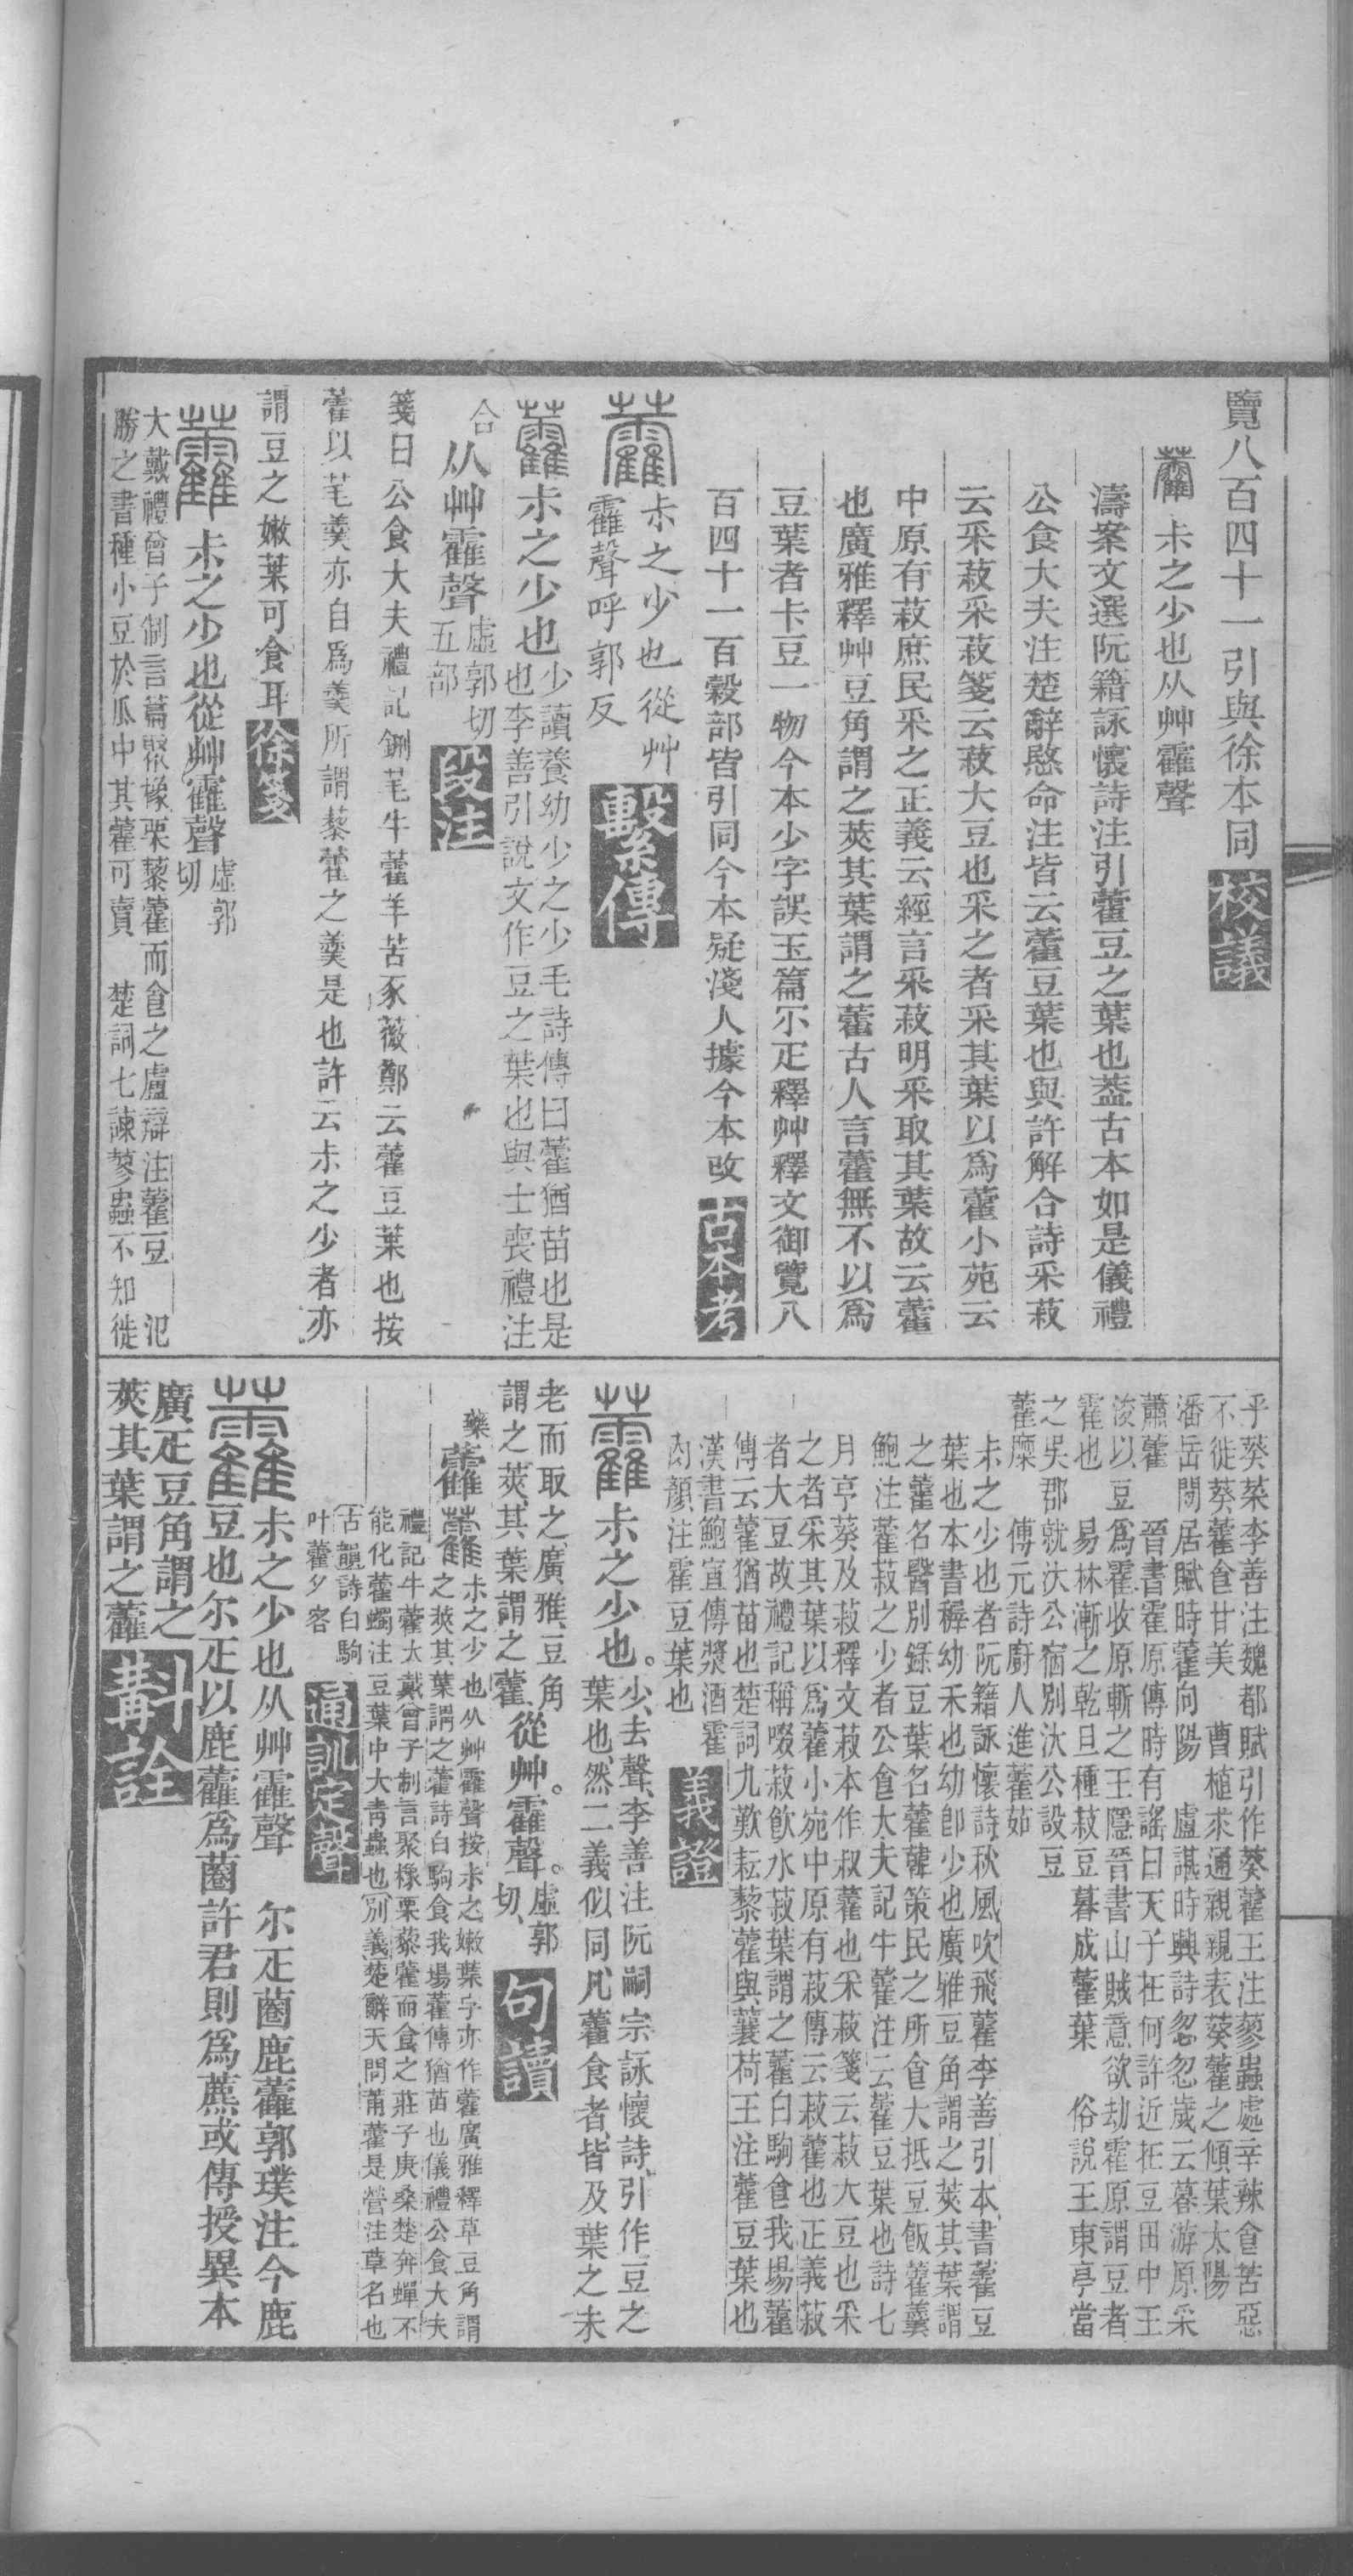 覽八百四十一引與徐本同校議
藿尗之少也从艸靃聲
濤案文選阮籍詠懷詩注引藿豆之葉也葢古本如是儀禮
公食大夫注楚辭愍命注皆云藿豆葉也與許解合詩采菽
云采菽采菽箋云菽大豆也采之者采其葉以爲藿小苑云
中原有菽庶民采之正義云經言采菽明采取其葉故云藿
也廣雅釋艸豆角謂之莢其葉謂之藿古人言藿無不以爲
豆葉者尗豆一物今本少字誤玉篇尒疋釋艸釋文御覽八
百四十一百穀部皆引同今本疑淺人據今本改古本考
藿尗之少也從艸
靃聲呼郭反繫傳
藿尗之少也少讀養幼少之少毛詩傳曰藿猶苗也是
也李善引說文作豆之葉也與士喪禮注
合从艸靃聲虛郭切
五部段注
箋曰公食大夫禮記鉶芼牛藿羊苦豕薇鄭云藿豆葉也按
藿以芼羹亦自爲羹所謂藜藿之羹是也許云尗之少者亦
謂豆之嫩葉可食耳徐箋
藿尗之少也從艸靃聲虛郭
切
大戴禮曾子制言篇聚橡栗藜藿而食之盧辯注藿豆 氾
勝之書種小豆於瓜中其藿可賣 楚詞七諫蓼蟲不知徙
乎葵菜李善注魏都賦引作葵藿王注蓼蟲處辛辣食苦惡
不徙葵藿食甘美 曹植求通親親表葵藿之傾葉太陽
潘岳閒居賦時藿向陽 盧諶時興詩忽忽歲云暮游原采
蕭藿 晉書霍原傳時有謠曰天子在何許近在豆田中王
浚以豆爲霍收原斬之王隱晉書山賊意欲劫霍原謂豆者
霍也 易林漸之乾旦種菽豆暮成藿葉 俗說王東亭當
之吳郡就汏公宿別汏公設豆
藿糜 傅元詩廚人進藿茹
尗之少也者阮籍詠懷詩秋風吹飛藿李善引本書藿豆
葉也本書稺幼禾也幼卽少也廣雅豆角謂之莢其葉謂
之藿名醫別錄豆葉名藿韓策民之所食大抵豆飯藿羹
鮑注藿菽之少者公食大夫記牛藿注云藿豆葉也詩七
月亨葵及菽釋文菽本作叔藿也采菽箋云菽大豆也采
之者采其葉以爲藿小宛中原有菽傳云菽藿也正義菽
者大豆故禮記稱啜菽飮水菽葉謂之藿白駒食我場藿
傳云藿猶苗也楚詞九歎耘藜藿與蘘荷王注藿豆葉也
漢書鮑宣傳漿酒霍
肉顏注霍豆葉也義證
藿尗之少也。少、去聲、李善注阮嗣宗詠懷詩、引作豆之
葉也、然二義似同、凡藿食者、皆及葉之未
老而取之、廣雅、豆角
謂之莢、其葉謂之藿、從艸。靃聲。虛郭
切、句讀
藥藿藿尗之少也从艸靃聲按尗之嫩葉字亦作藿廣雅釋草豆角謂
之莢其葉謂之藿詩白駒食我場藿傳猶苗也儀禮公食大夫
禮記牛藿大戴曾子制言聚橡栗藜藿而食之莊子庚桑楚奔蜂不
能化藿蠋注豆葉中大靑蟲也〔別義〕楚辭天問莆藿是營注草名也
〔古韻〕詩白駒
叶藿夕客通訓定聲
藿尗之少也从艸靃聲 尔疋蔨鹿藿郭璞注今鹿
豆也尔疋以鹿藿爲蔨許君則爲藨或傳授異本
廣疋豆角謂之
莢其葉謂之藿斠詮